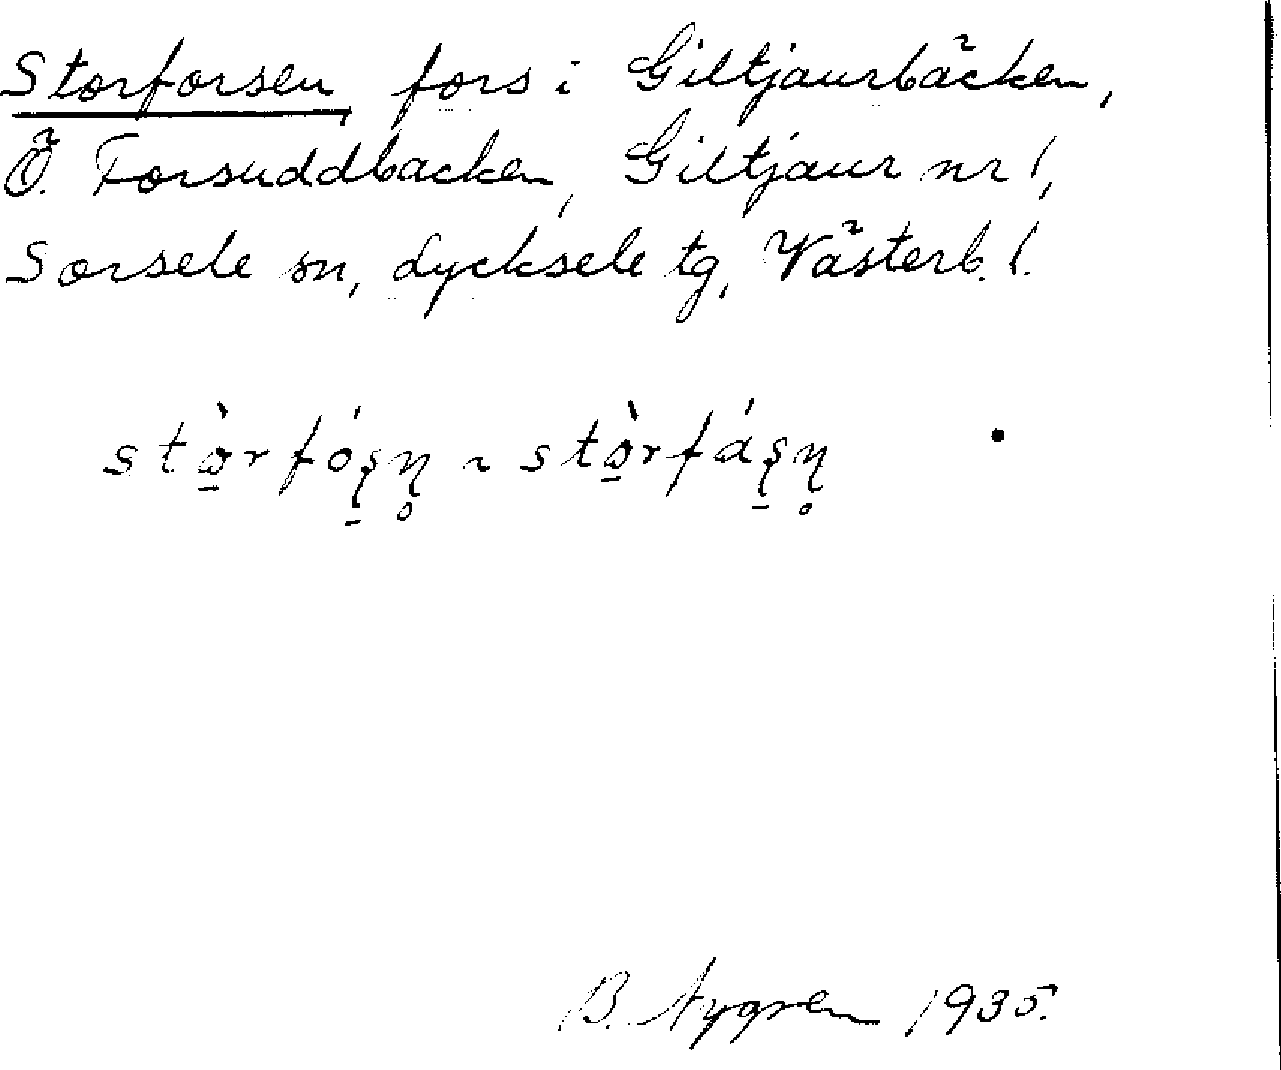 Storforsen, fors i Giltjaurbäcken,
Ö. Forsuddbacken, Giltjaur nr 1,
Sorsele sn, Lycksele tg, Västerb. l.
stò̠rfóş̠ņ̥ ~ stò̠rfáş̠ņ̥
B. Nygren 1935.